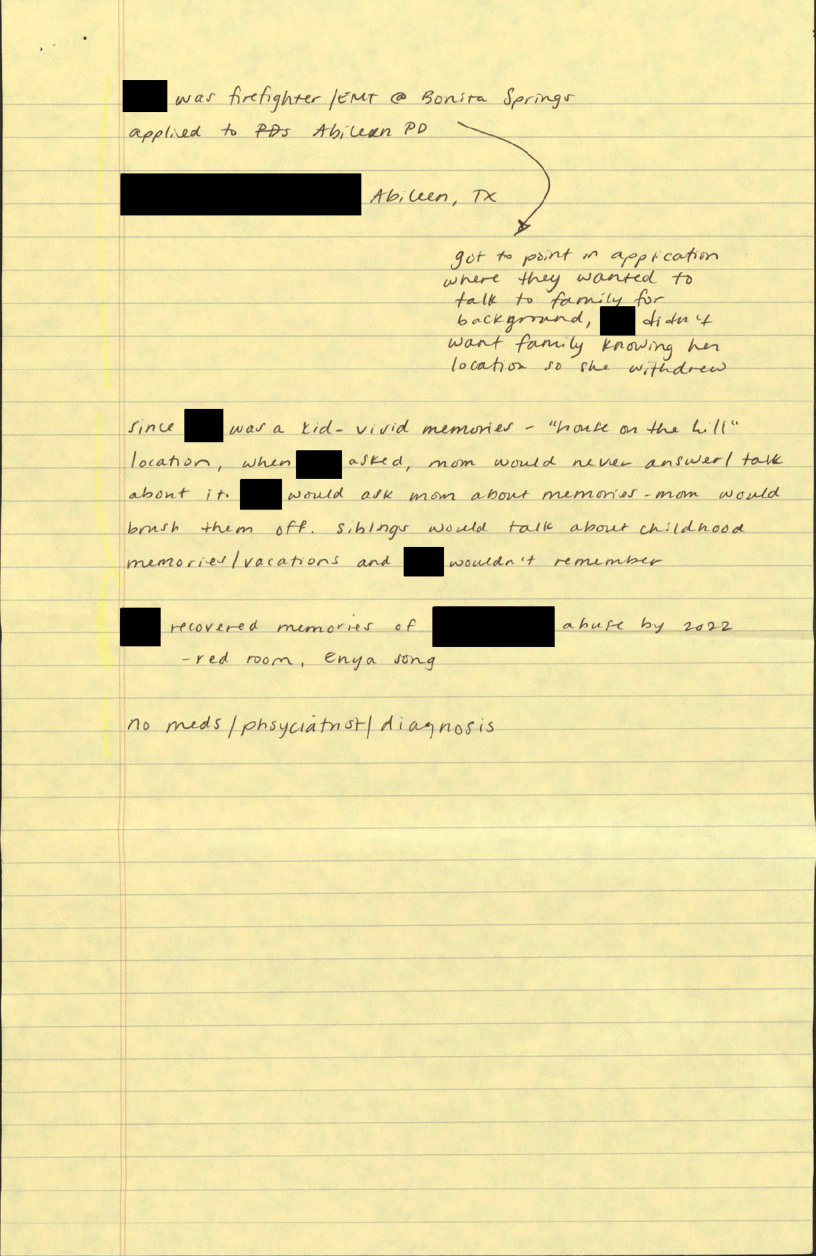 was firefighter/EMT @ Bonita Springs
applied to PDs Abileen PD
Abileen, TX
got to point in application
where they wanted to
talk to family for
background, didn't
want family knowing her
location so she withdrew
since was a kid- vivid memories - "house on the hill"
location, when asked, mom would never answer/talk
about it. would ask mom about memories - mom would
brush them off. siblings would talk about childhood
memories/vacations and wouldn't remember
recovered memories of abuse by 2022
-red room, Enya song
no meds/phsyciatrist/diagnosis